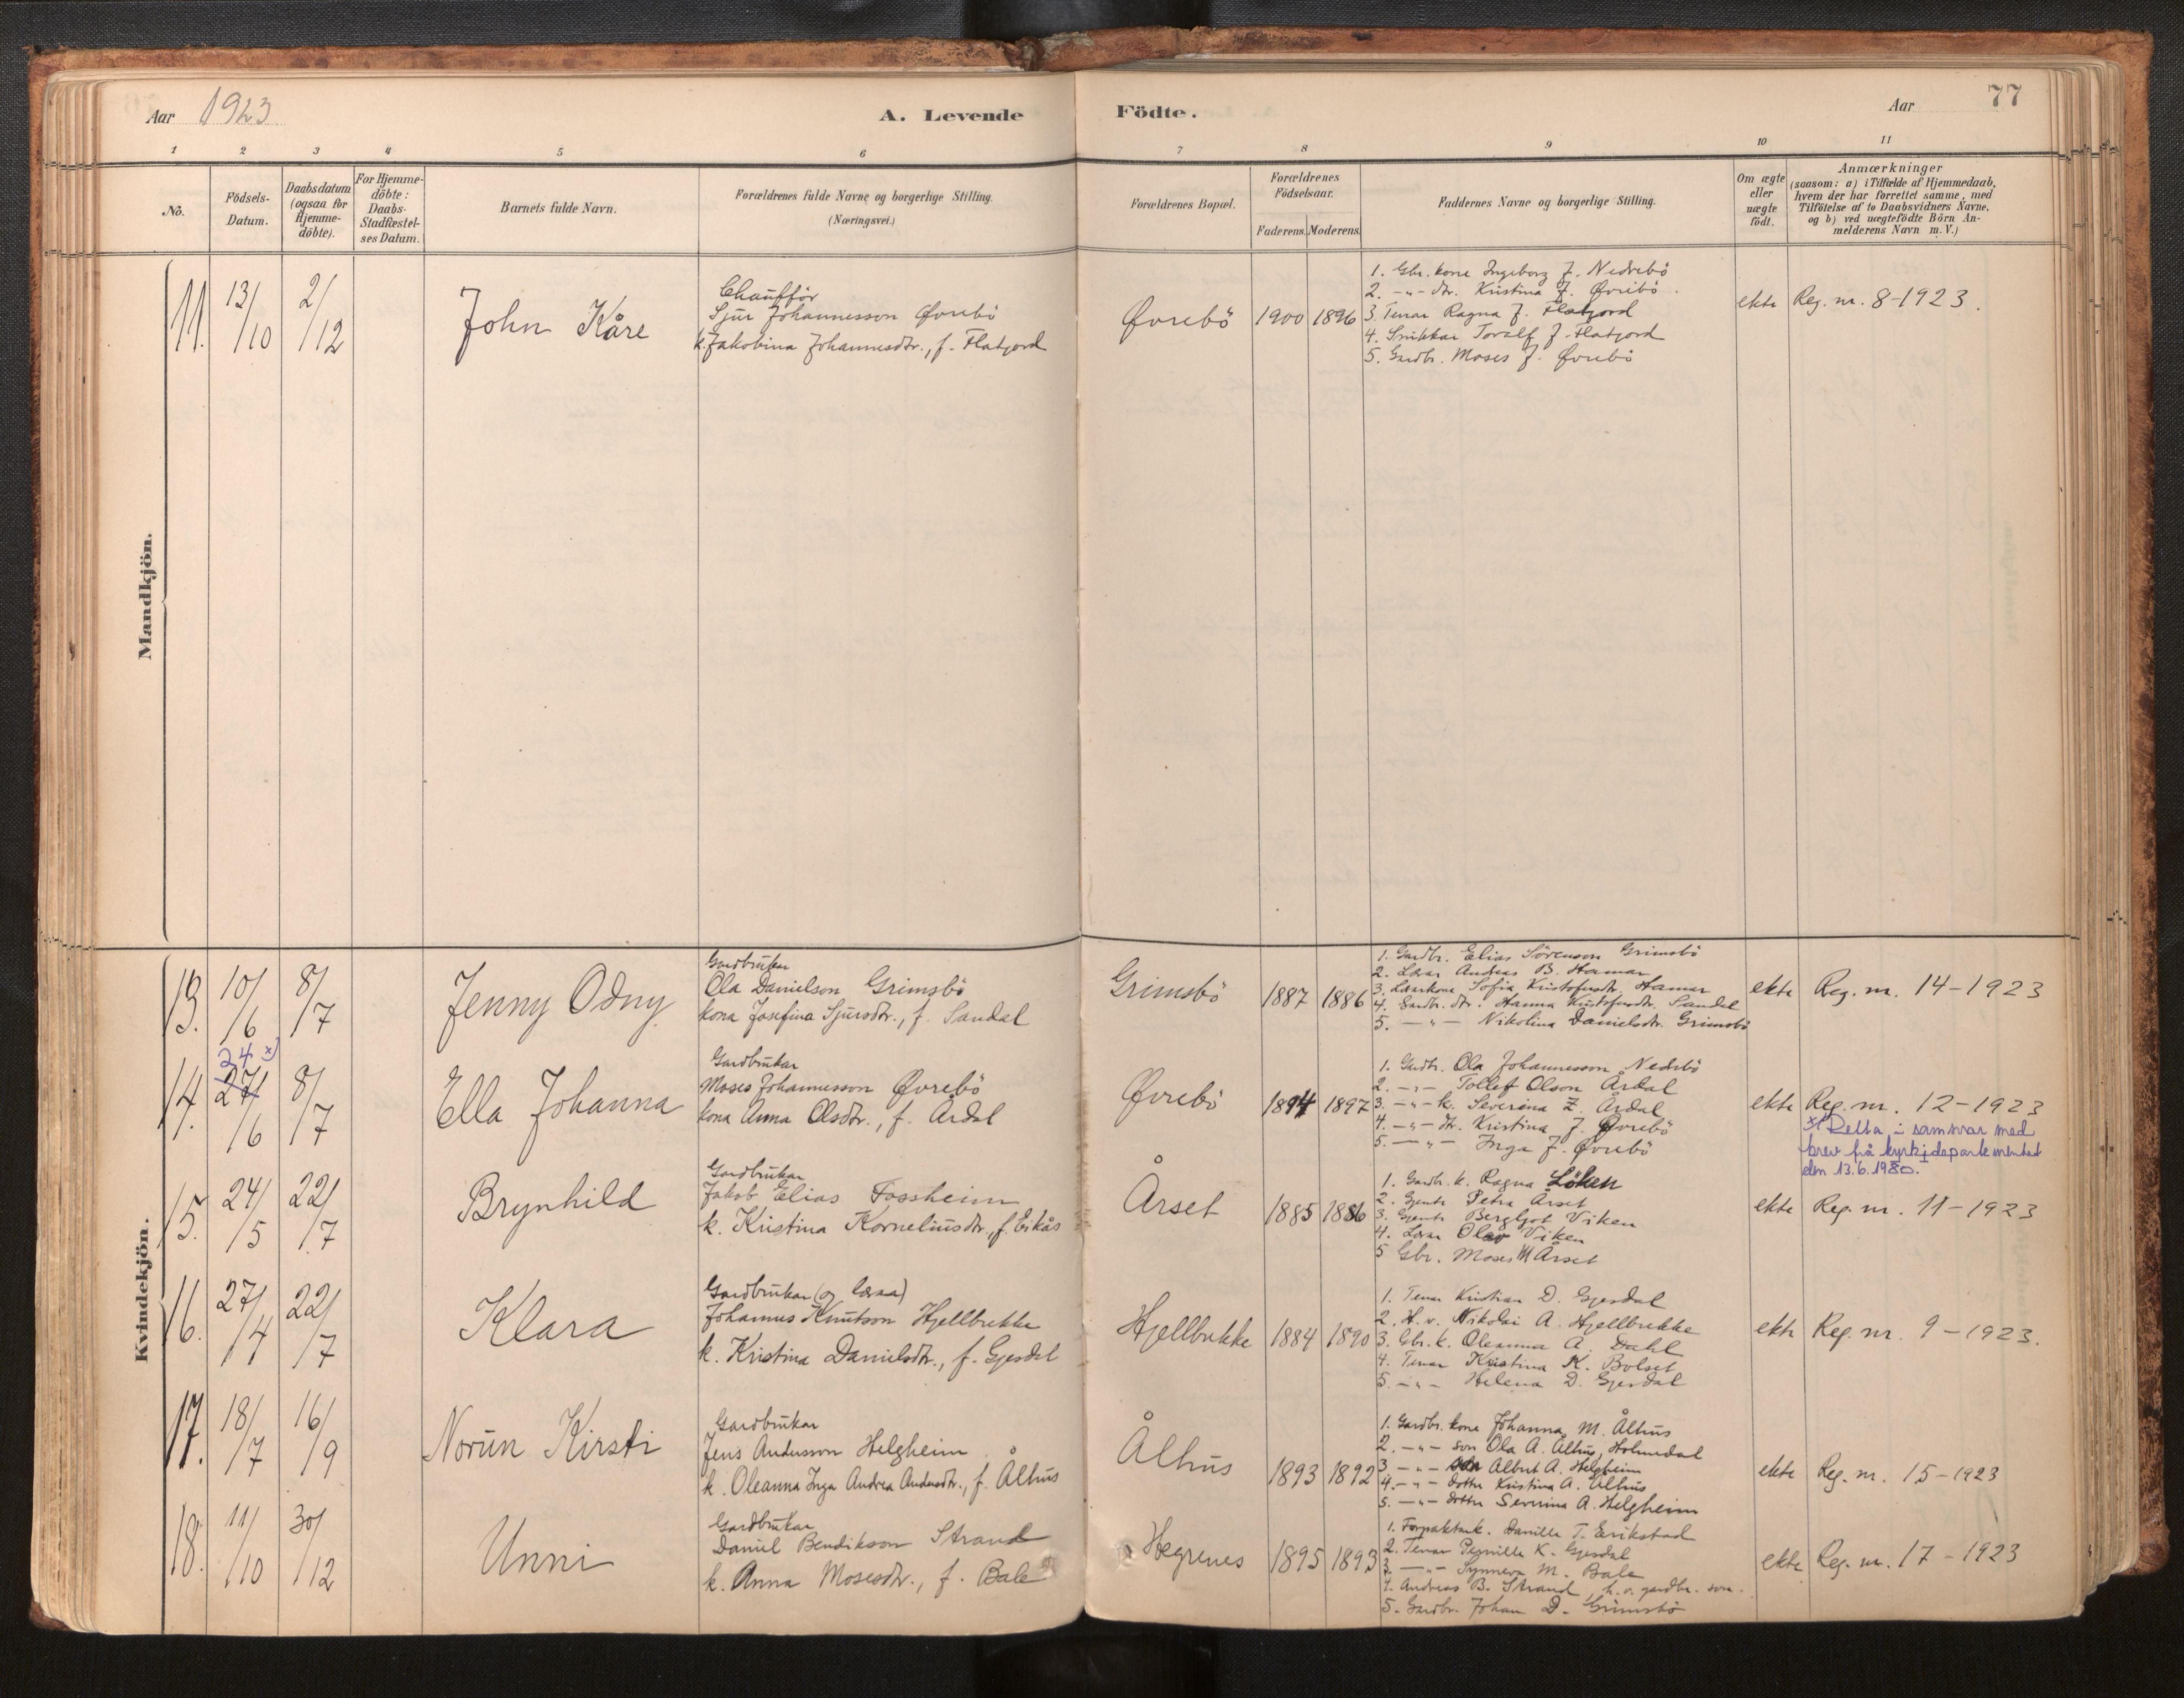 Aar 1923 A. Levende Födte. Aar 77
1 2 3 4 5 6 7 8 9 10 11
No. Födsels-Datum. Daabsdatum (ogsaa for Hjemme-döbte). For Hjemme-döbte: Daabs-Stadfæstel-ses Datum. Barnets fulde Navn. Forældrenes fulde Navne og borgerlige Stilling. (Næringsvei.) Forældrenes Bopæl. Forældrenes Födselsaar. Faderens. Moderens. Faddernes Navne og borgerlige Stilling. Om ægte eller uægte födt. Anmærkninger (saasom: a) i Tilfælde af Hjemmedaab, hvem der har forrettet samme, med Tilföielse af to Daabsvidners Navne, og b) ved uægtefödte Börn An-melderens Navn m. V.)
Mandkjön.
11. 13/10 2/12 John Kåre
Chaufför
Sjur Johannesson Øvrebö
k. Jakobina Johannesdtr., f. Flatjord
Øvrebö 1900 1896
1. Gbr. kone Ingeborg J. Nedrebö
2. -"- dtr. Kristina J. Øvrebö.
3. Tenar Ragna J. Flatjord
4. Snikkar Toralf J. Flatjord
5. Gardbr. Moses J. Øvrebö
ekte Reg. nr. 8-1923.
Kvindekjön.
13. 10/6 8/7 Jenny Odny
Gardbrukar
Ola Danielson Grimsbö
kona Josefina Sjursdtr., f. Sandal
Grimsbö 1887 1886
1. Gardbr. Elias Sörenson Grimsbö
2. Lærar Andreas B. Hamar
3. Lærarkona Sofia Kristofersdtr. Hamar
4. Gardbr. dtr. Hanna Kristofersdtr. Sandal
5. -"- Nikolina Danielsdtr. Grimsbö
ekte Reg. nr. 14-1923
14. 24 x) 27/6 8/7 Ella Johanna
Gardbrukar
Moses Johannesson Øvrebö
kona Anna Olsdtr., f. Årdal
Øvrebö 1894 1897
1. Gardbr. Ola Johannesson Nedrebö
2. -"- Tollef Olson Årdal
3. -"- k. Severina Z. Årdal
4. -"- dtr. Kristina J. Øvrebö
5. -"- Inga J. Øvrebö
ekte Reg. nr. 12-1923
x) Retta i samsvar med
brev frå kyrkjedepartementet
den 13.6.1980.
15. 24/5 22/7 Brynhild
Gardbrukar
Jakob Elias Fossheim
k. Kristina Korneliusdtr., f. Eikås
Årset 1885 1886
1. Gardbr. k. Ragna Löken
2. Gjente Petra Årset
3. Gjente Bergljot Viken
4. Lærar Olav Viken
5 Gbr. Moses M Årset
ekte Reg. nr. 11-1923
16. 27/4 22/7 Klara
Gardbrukar (og lærar)
Johannes Knutson Hjellbrekke
k. Kristina Danielsdtr., f. Gjesdal
Hjellbrekke 1884 1890
1. Tenar Kristian D. Gjesdal
2. H. v. Nikolai A. Hjellbrekke
3. Gbr. k. Oleanna A. Dahl
4. Tenar Kristina K. Bolset
5. -"- Helena D. Gjesdal
ekte Reg. nr. 9-1923.
17. 18/7 16/9 Norun Kirsti
Gardbrukar
Jens Andersson Helgheim
k. Oleanna Inga Andrea Andersdtr., f. Ålhus
Ålhus 1893 1892
1. Gardbr. kone Johanna M. Ålhus
2. -"- son Ola A. Ålhus, Holmedal
3 -"- son Albert A. Helgheim
4. -"- dotter Kristina A. Ålhus
5. -"- dotter Severina A. Helgheim
ekte Reg. nr. 15-1923
18. 11/10 30/12 Unni
Gardbrukar
Daniel Bendikson Strand
k. Anna Mosesdtr., f. Bale
Hegrenes 1895 1893
1. Forpaktark. Danille T. Erikstad
2. Tenar Pernille K. Gjesdal
3. -"- Synneva M. Bale
4. Andreas B. Strand, h. v. gardbr. son.
5. Gardbr. Johan D. Grimsbö
ekte Reg. nr. 17-1923